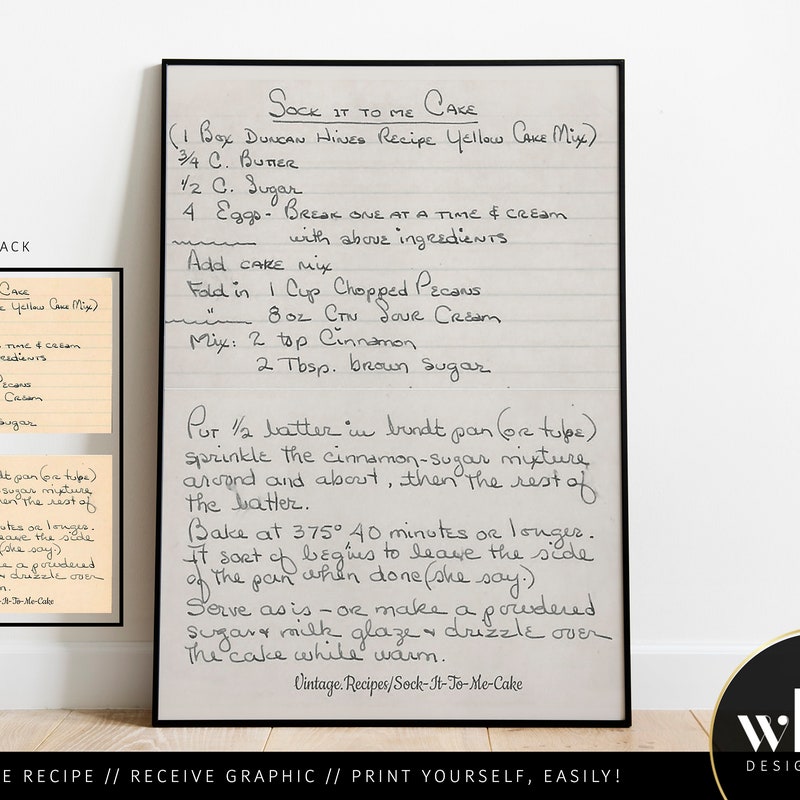 Sock it to me Cake
(1 Box Duncan Hines Recipe Yellow Cake Mix)
3/4 C. Butter
1/2 C. Sugar
4 Eggs - Break one at a time & cream
with above ingredients
Add cake mix
Fold in 1 Cup Chopped Pecans
" 8 oz Ctn Sour Cream
Mix: 2 tsp Cinnamon
2 Tbsp. brown sugar
Put 1/2 batter in bundt pan (or tube)
sprinkle the cinnamon-sugar mixture
around and about, then the rest of
the batter.
Bake at 375° 40 minutes or longer.
It sort of begins to leave the side
of the pan when done (she say.)
Serve as is - or make a powdered
sugar & milk glaze & drizzle over
the cake while warm.
Vintage.Recipes/Sock-It-To-Me-Cake
ACK
Cake
e Yellow Cake Mix)
time & cream
redients
Pecans
Cream
sugar
dt pan (or tube)
sugar mixture
hen the rest of
utes or longer.
leave the side
(she say.)
e a powdered
drizzle over
m.
-It-To-Me-Cake
E RECIPE // RECEIVE GRAPHIC // PRINT YOURSELF, EASILY!
W
DESIG